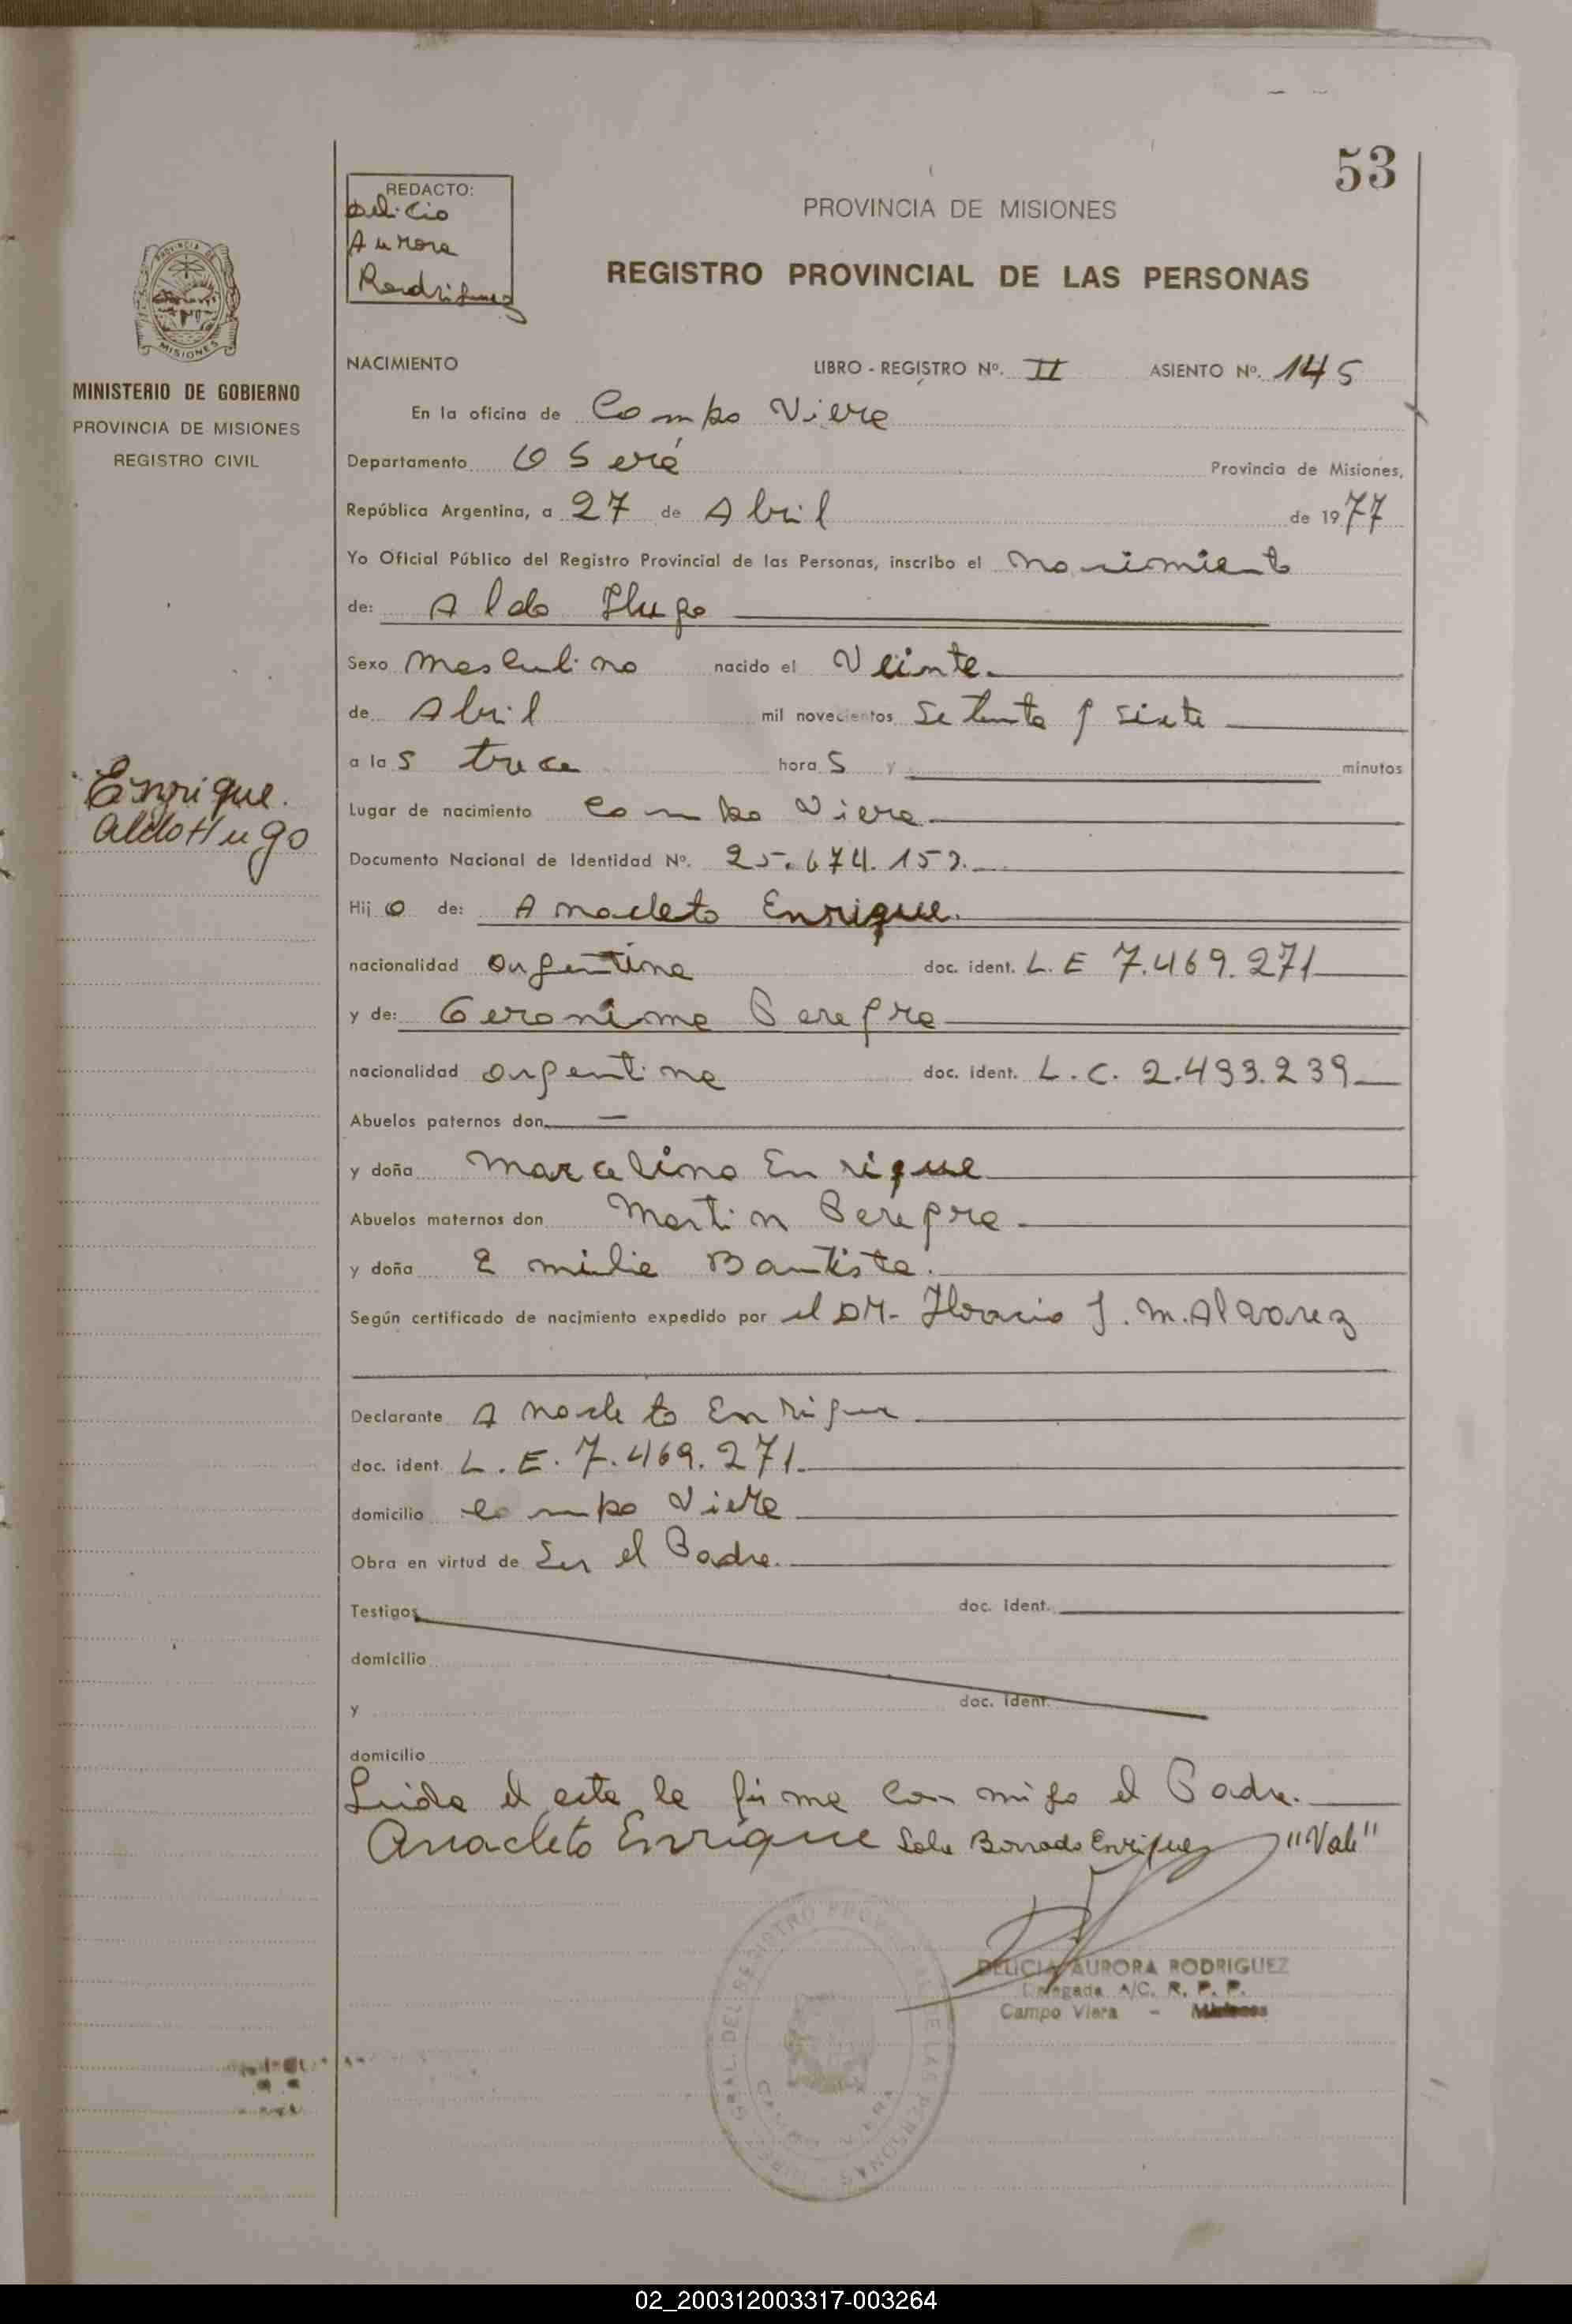 53
REDACTO:
Delicia
Aurora
Rodriguez
PROVINCIA DE MISIONES
REGISTRO PROVINCIAL DE LAS PERSONAS
PROVINCIA DE
MISIONES
MINISTERIO DE GOBIERNO
PROVINCIA DE MISIONES
REGISTRO CIVIL
NACIMIENTO LIBRO - REGISTRO Nº. II ASIENTO Nº. 145
En la oficina de Campo Viera
Departamento Oberá Provincia de Misiones,
República Argentina, a 27 de Abril de 1977
Yo Oficial Público del Registro Provincial de las Personas, inscribo el nacimiento
de: Aldo Hugo
Sexo masculino nacido el Veinte
de Abril mil novecientos setenta y siete
a las trece horas y minutos
Enrique.
Aldo Hugo
Lugar de nacimiento Campo Viera
Documento Nacional de Identidad Nº. 25.674.159.
Hijo de: Anacleto Enrique.
nacionalidad argentina doc. ident. L.E 7.469.271
y de: Geronima Pereyra
nacionalidad argentina doc. ident. L.C. 2.493.239
Abuelos paternos don —
y doña Marcelina Enrique
Abuelos maternos don Martin Pereyra
y doña Emilia Bautista.
Según certificado de nacimiento expedido por el DR. Horacio J. M. Alvarez
Declarante Anacleto Enrique
doc. ident. L.E. 7.469.271.
domicilio Campo Viera
Obra en virtud de Ser el Padre.
Testigos doc. ident.
domicilio
y doc. ident.
domicilio
Leida el acta la firma conmigo el Padre.
Anacleto Enrique Sobre Borrado Enrique "Vale"
DELICIA AURORA RODRIGUEZ
Delegada A/C. R. P. P.
Campo Viera - Misiones
GRAL. DEL REGISTRO PROV. DE LAS PERSONAS
02_200312003317-003264